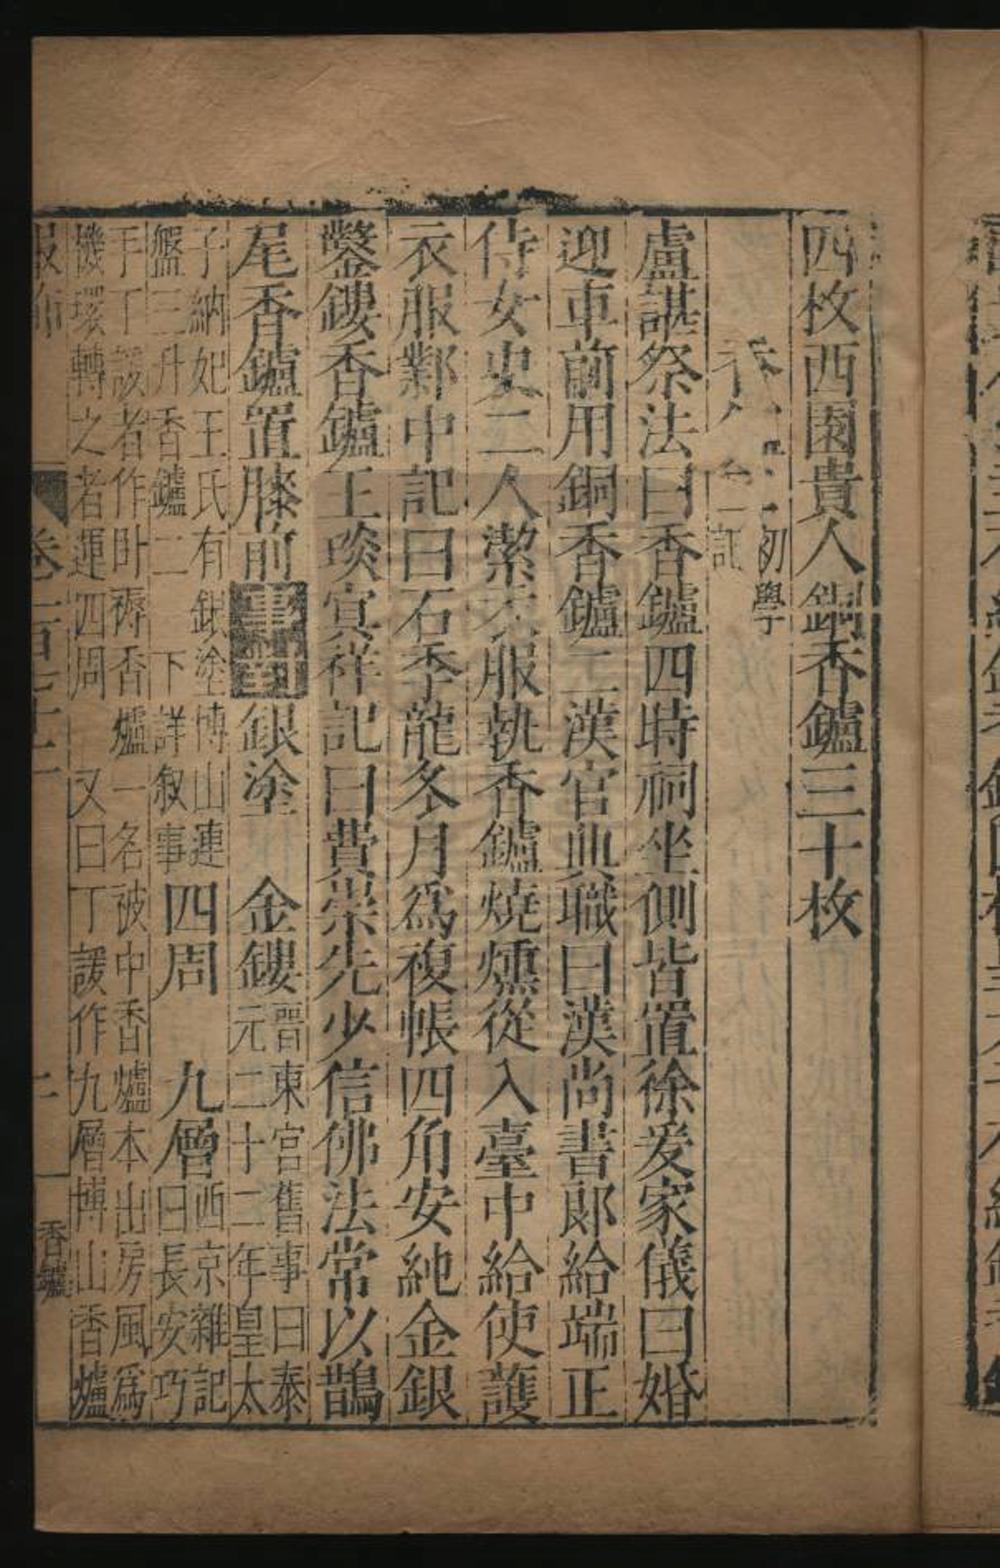 四枚西園貴人銅香鑪三十枚
香 二 初學記
盧諶祭法曰香鑪四時祠坐側皆置徐爰家儀曰婚
迎車前用銅香鑪二漢官典職曰漢尚書郎給端正
侍女史二人潔衣服執香鑪燒燻從入臺中給使護
衣服鄴中記曰石季龍冬月爲複帳四角安純金銀
鑿鏤香鑪王琰冥祥記曰費崇先少信佛法常以鵲
尾香鑪置膝前事對銀塗 金鏤晉東宮舊事曰泰元二十二年皇太
子納妃王氏有銀塗博山連盤三升香鑪二 下詳叙事四周 九層西京雜記曰長安巧
手丁諼者作卧褥香爐一名被中香爐本出房風爲機環轉之者運四周 又曰丁諼作九層博山香爐
卷二百二十二 二 香爐